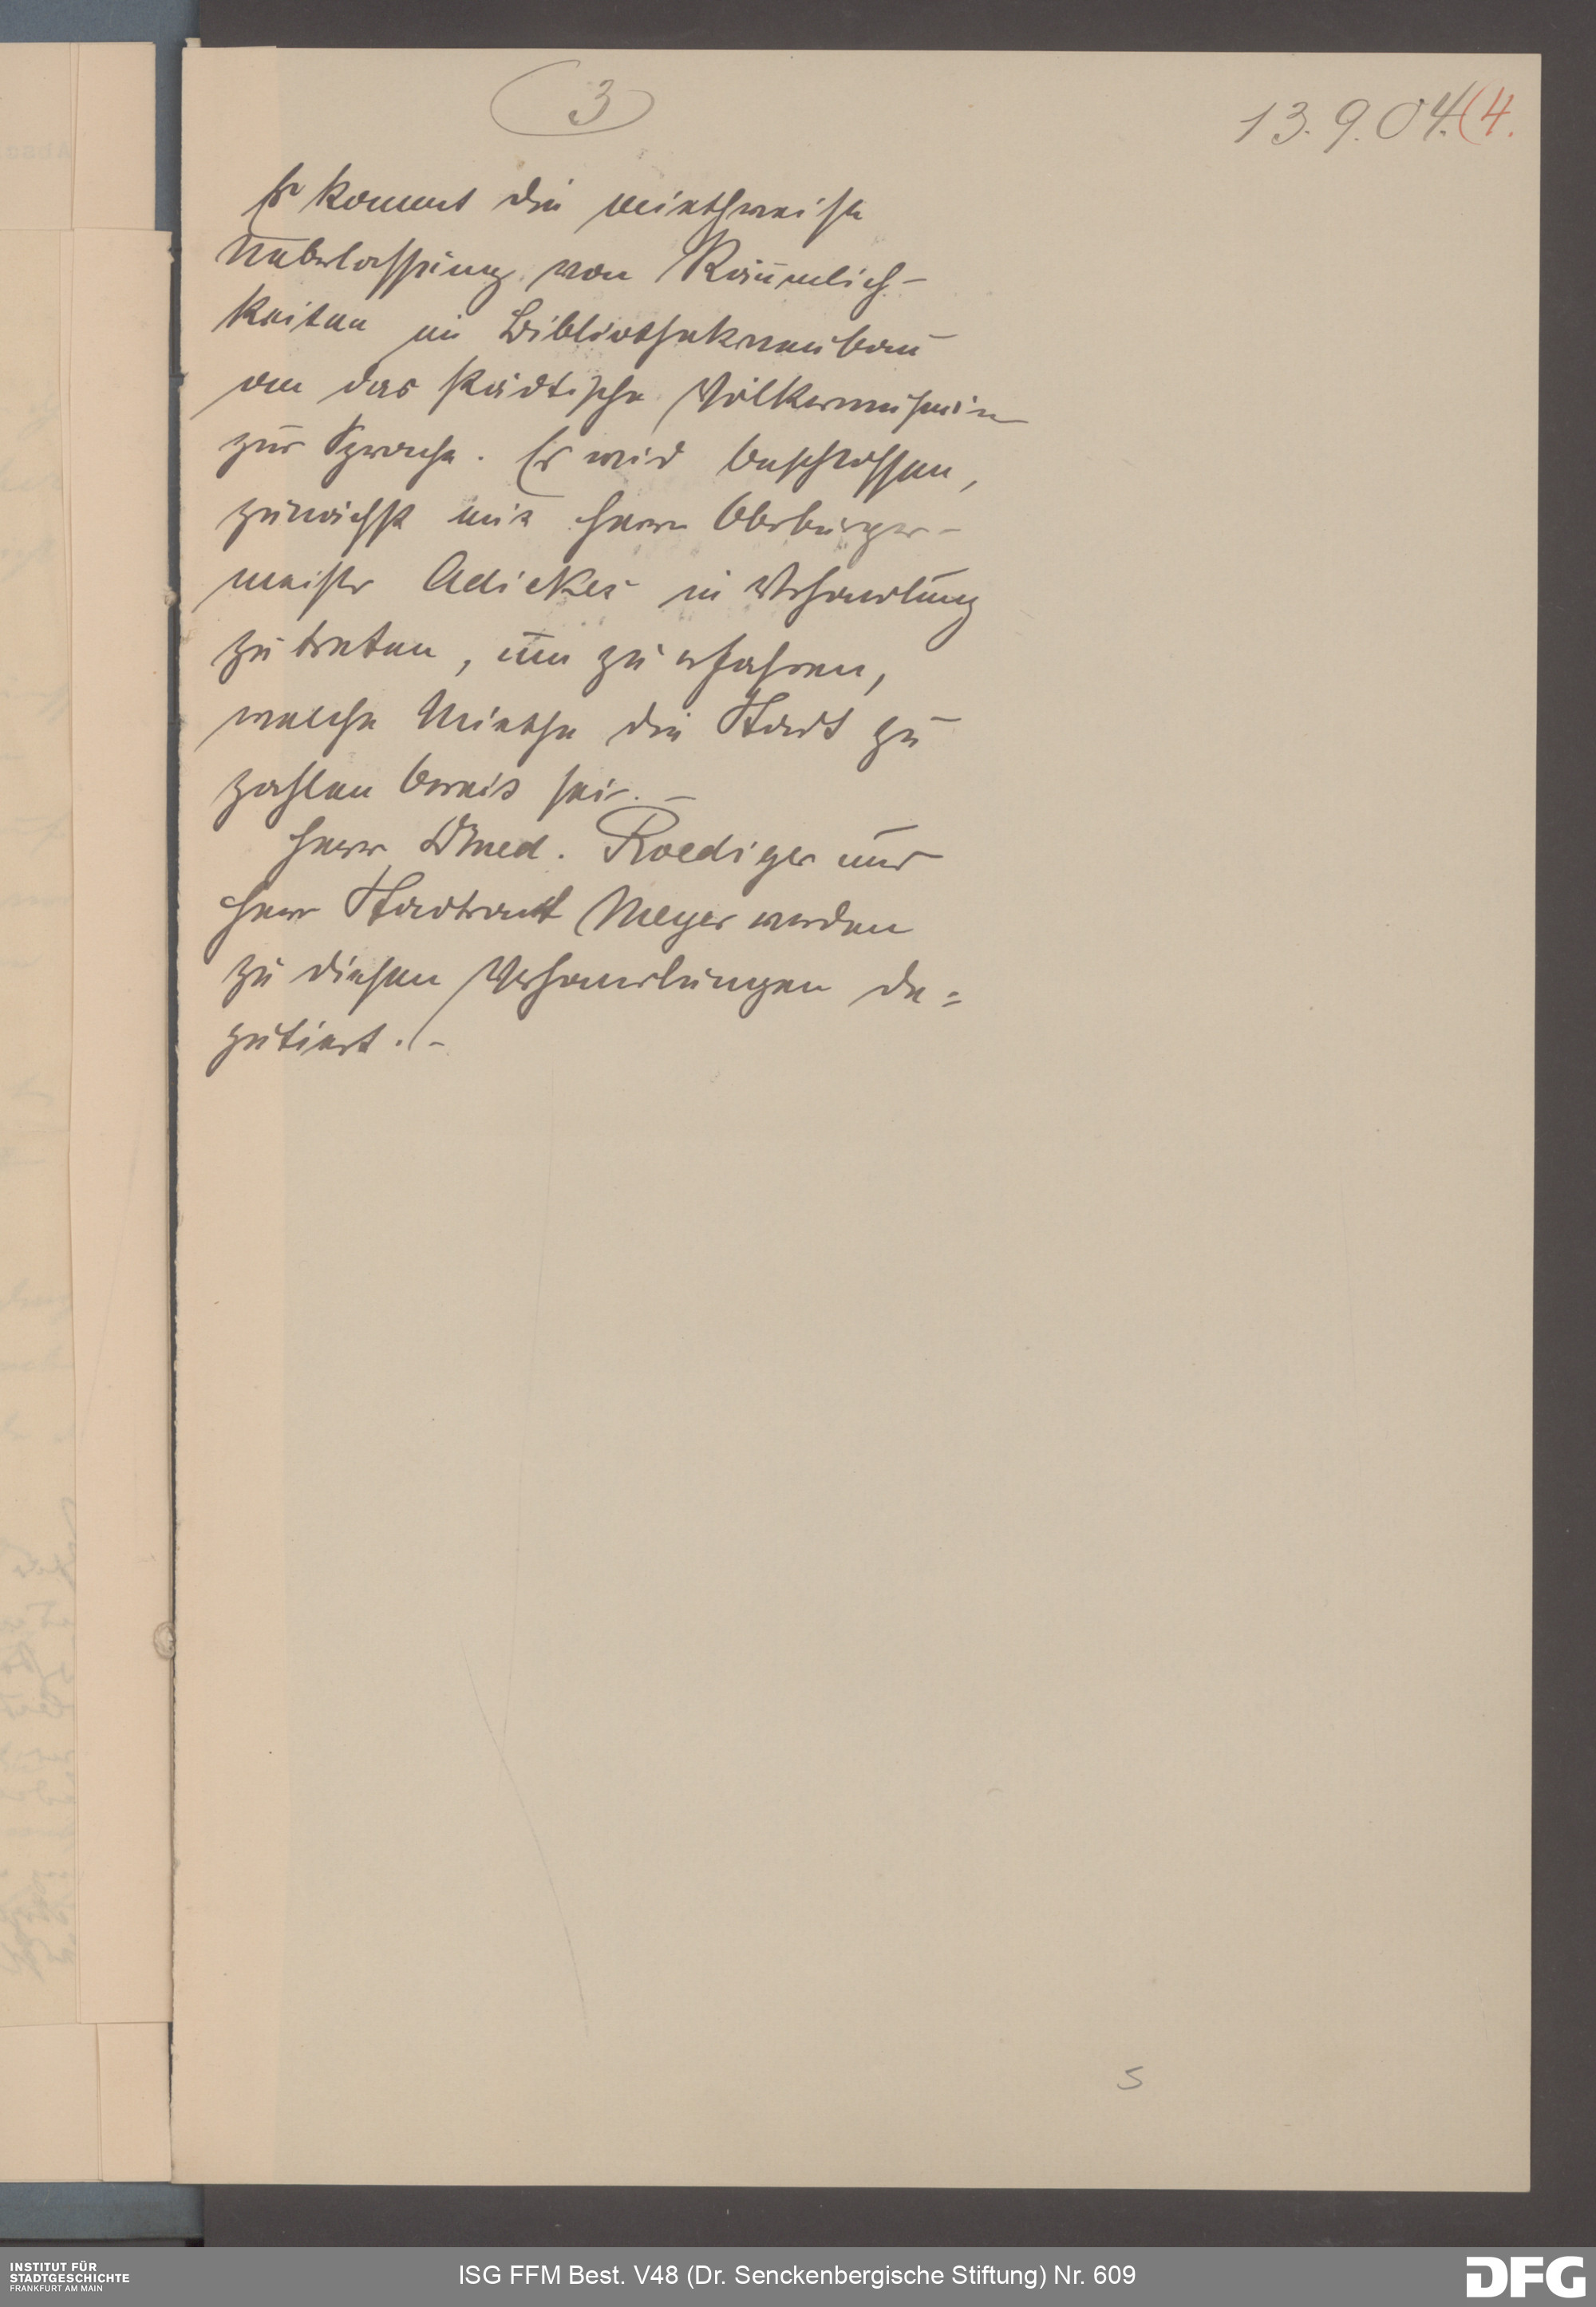 3
13.9.04. (4.
Es kommt die miethweise
Ueberlassung von Räumlich-
keiten im Bibliothekneubau
an das städtische Völkermuseum
zur Sprache. Es wird beschlossen,
zunächst mit Herrn Oberbürger-
meister Adickes in Verhandlung
zu treten, um zu erfahren,
welche Miethe die Stadt zu
zahlen bereit sei. –
Herr Dr med. Roediger und
Herr Stadtrath Meyer werden
zu diesen Verhandlungen de=
putiert. –
5
INSTITUT FÜR
STADTGESCHICHTE
FRANKFURT AM MAIN
ISG FFM Best. V48 (Dr. Senckenbergische Stiftung) Nr. 609
DFG